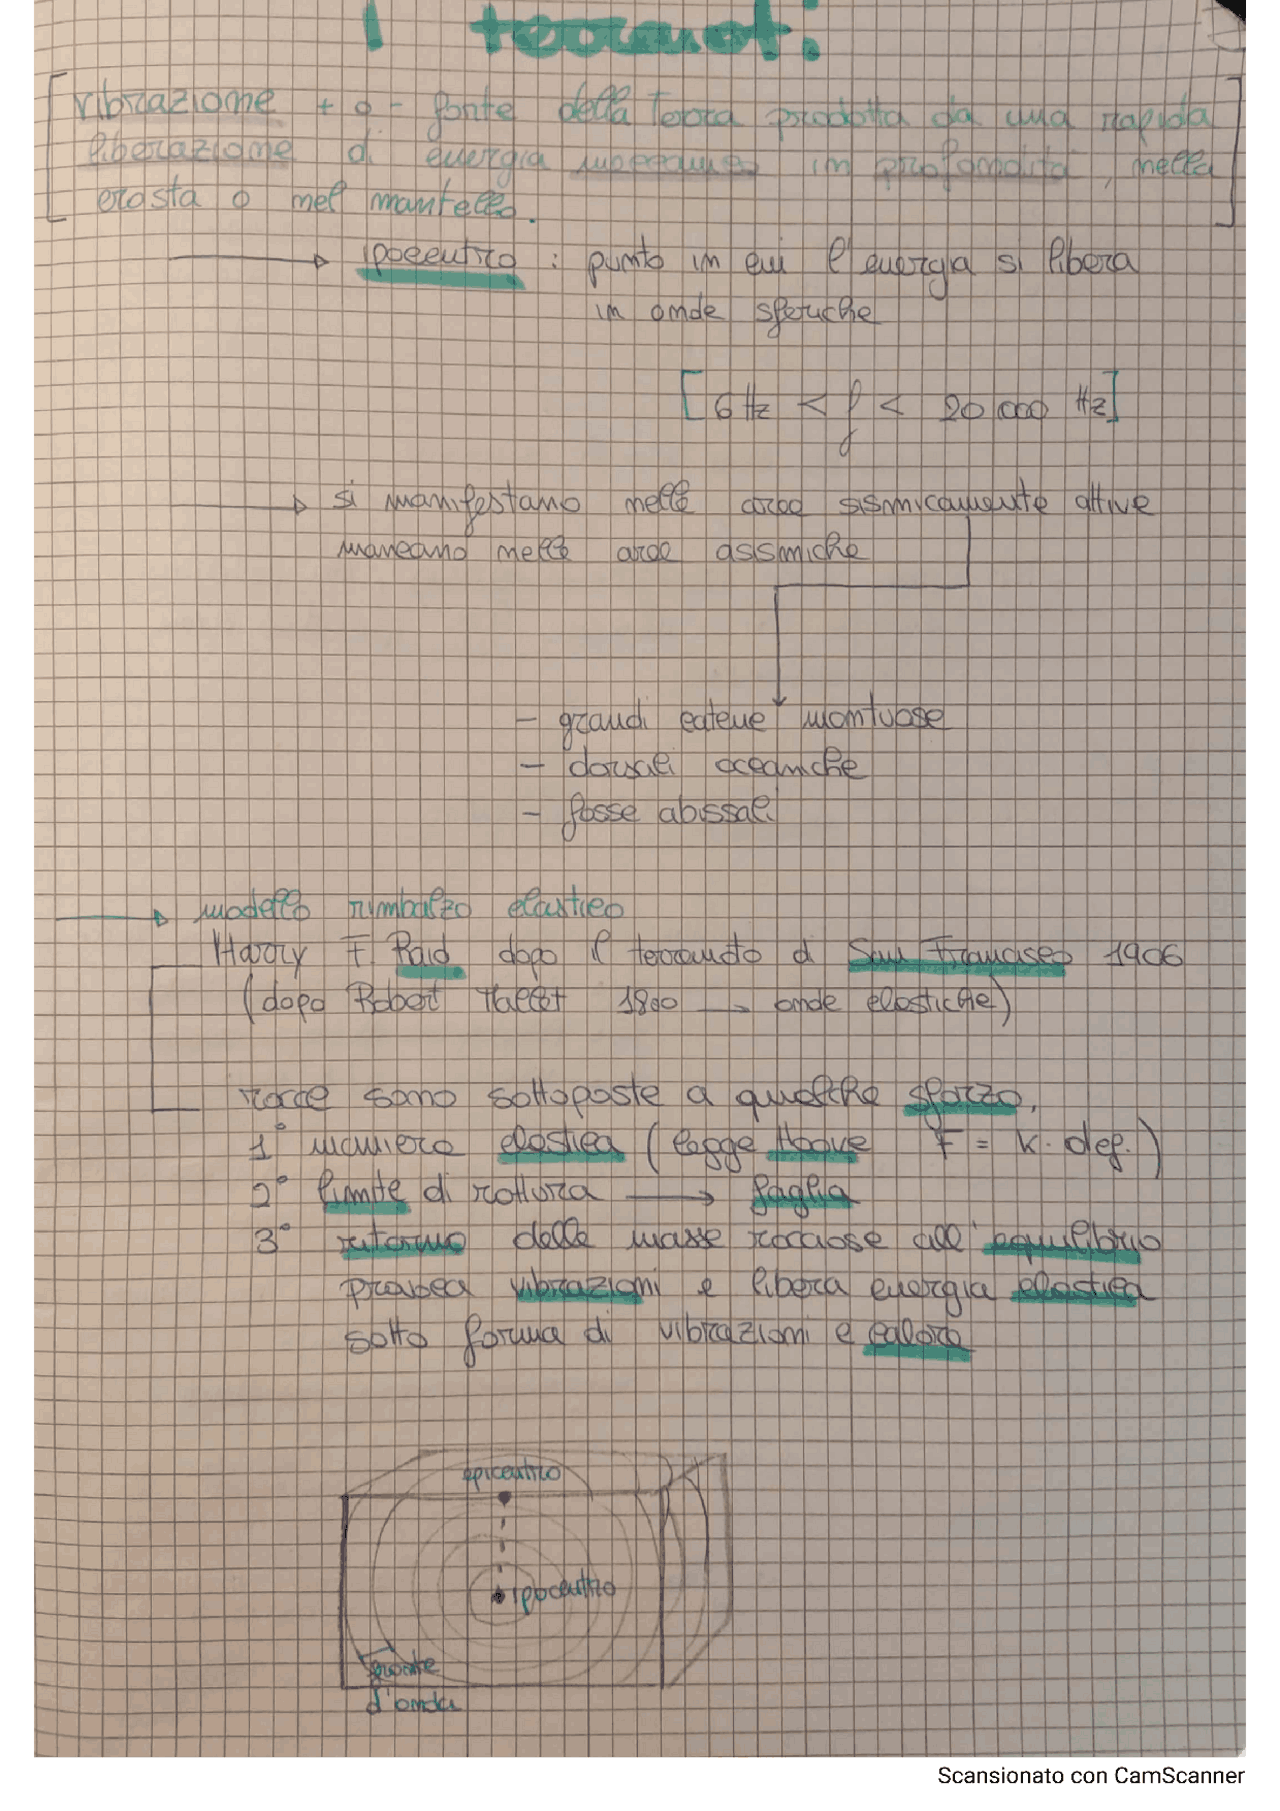 I terremoti
[vibrazione + o - forte della Terra prodotta da una rapida
liberazione di energia meccanica in profondità, nella
crosta o nel mantello.]
→ ipocentro : punto in cui l'energia si libera
in onde sferiche
[6 Hz < f < 20 000 Hz]
→ si manifestano nelle aree sismicamente attive
mancano nelle aree asismiche
- grandi catene montuose
- dorsali oceaniche
- fosse abissali
→ modello rimbalzo elastico
Harry F Raid dopo il terremoto di San Francisco 1906
(dopo Robert Mallet 1800 → onde elastiche)
rocce sono sottoposte a qualche sforzo.
1° maniera elastica (legge Hooke F = k · def.)
2° limite di rottura → faglia
3° ritorno delle masse rocciose all'equilibrio
provoca vibrazioni e libera energia elastica
sotto forma di vibrazioni e calore
epicentro
ipocentro
fronte
d'onda
Scansionato con CamScanner